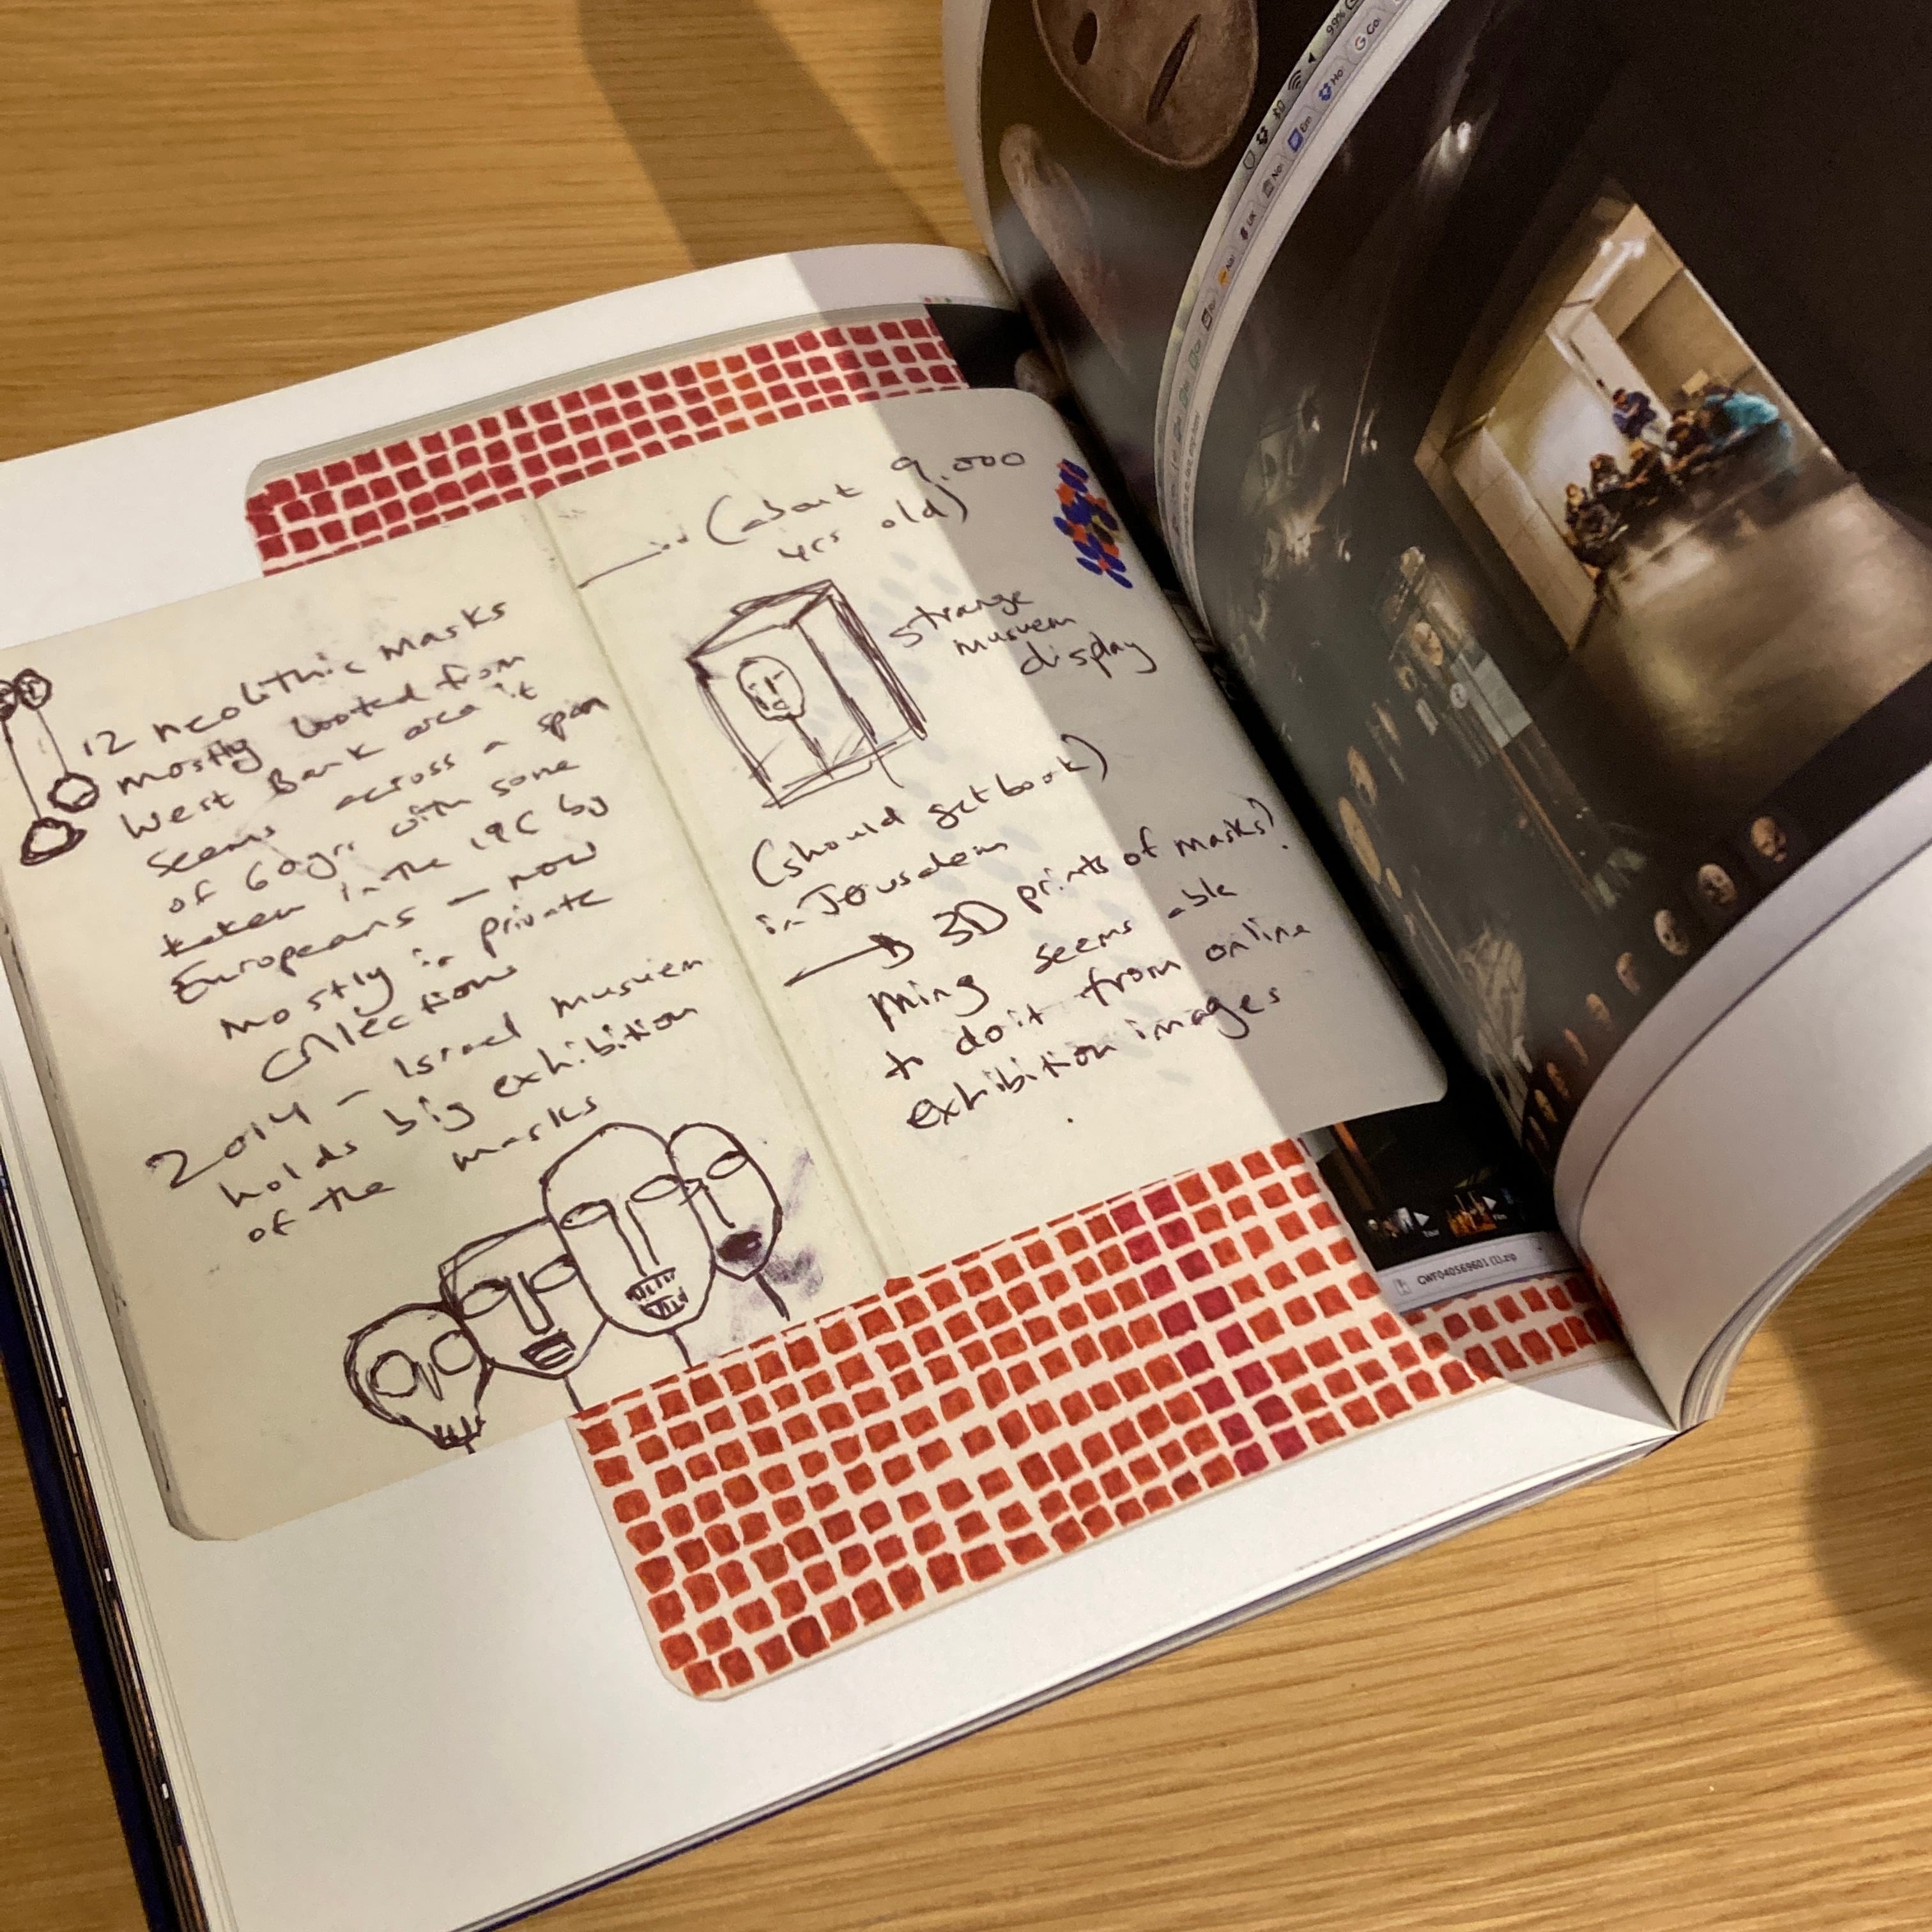 12 neolithic masks
mostly looted from
West Bank area it
seems across a span
of 60yrs with some
taken in the 19C by
Europeans — now
mostly in private
collections
2014 — Israel musuem
holds big exhibition
of the masks
(about 9,000
yrs old)
strange
musuem
display
(should get book)
in Jerusalem
→ 3D prints of masks?
Ming seems able
to do it from online
exhibition images
.
99%
G Co
Ho
Em
No
UK
No
GWF040569601 (1).zip